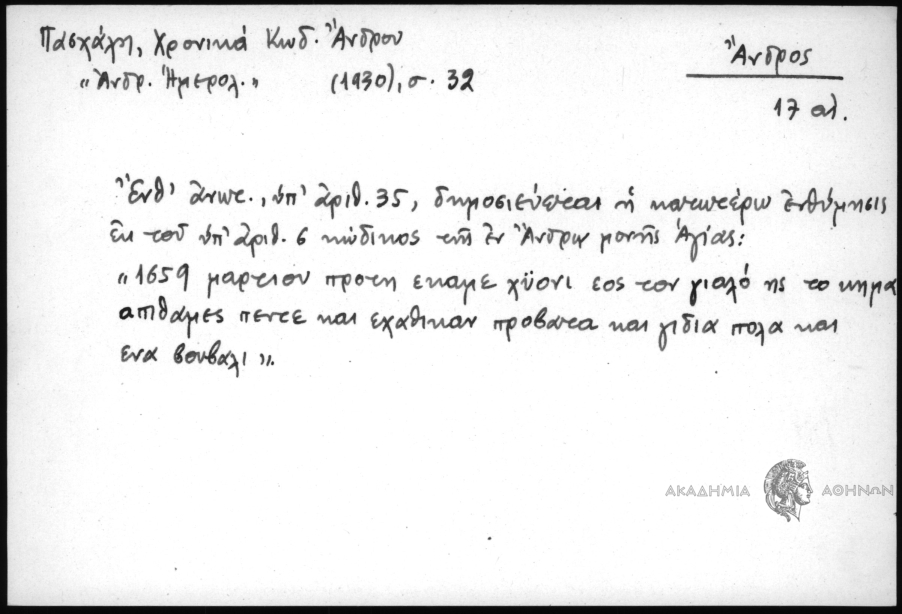 Πασχάλη, Χρονικά Κωδ. Ἄνδρου
"Ἀνδρ. Ἡμερολ." (1930), σ. 32
Ἄνδρος
17 αι.
Ἔνθ' ἄνωτ., ὑπ' ἀριθ. 35, δημοσιεύεται ἡ κατωτέρω ἐνθύμησις
ἐκ τοῦ ὑπ' ἀριθ. 6 κώδικος τῆς ἐν Ἄνδρῳ μονῆς Ἁγίας:
"1659 μαρτιου προτη εκαμε χϋονι εος τον γιαλό ης το κημα
απιθαμες πεντε και εχαθικαν προβατα και γιδια πολα και
ενα βουβαλι".
ΑΚΑΔΗΜΙΑ ΑΘΗΝΩΝ